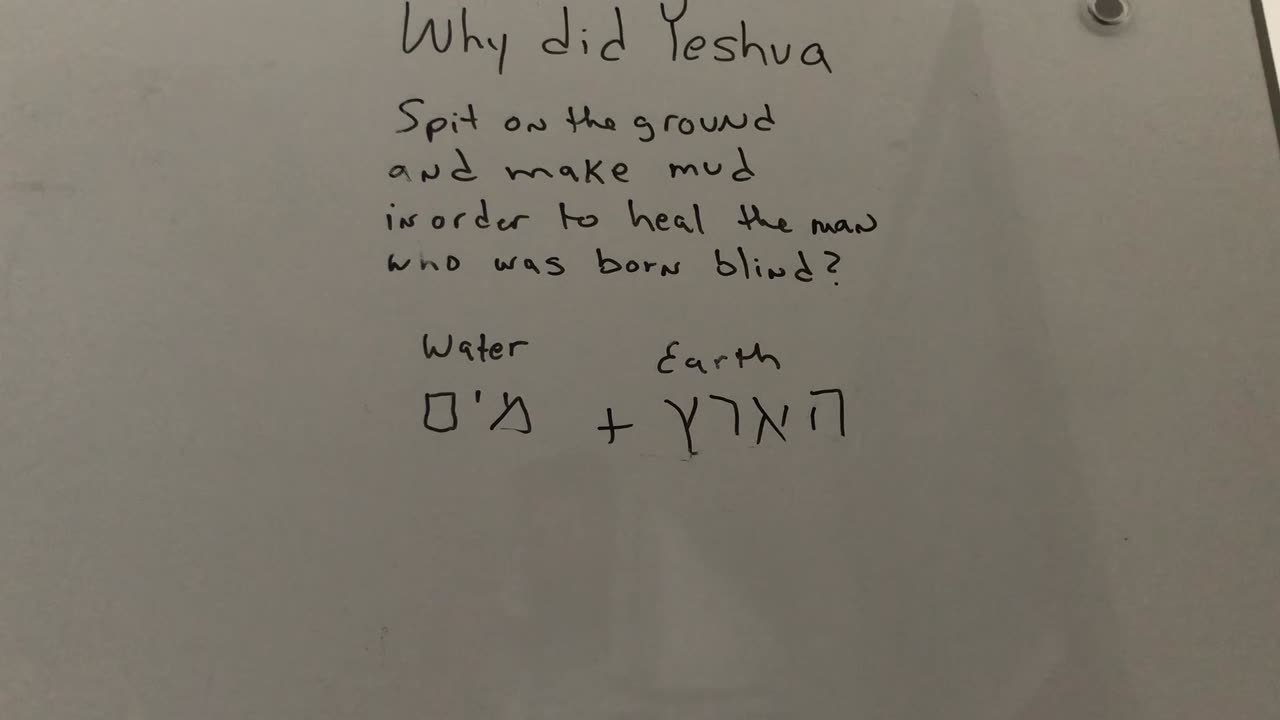 Why did Yeshua
Spit on the ground
and make mud
in order to heal the man
who was born blind?
Water Earth
מים + הארץ